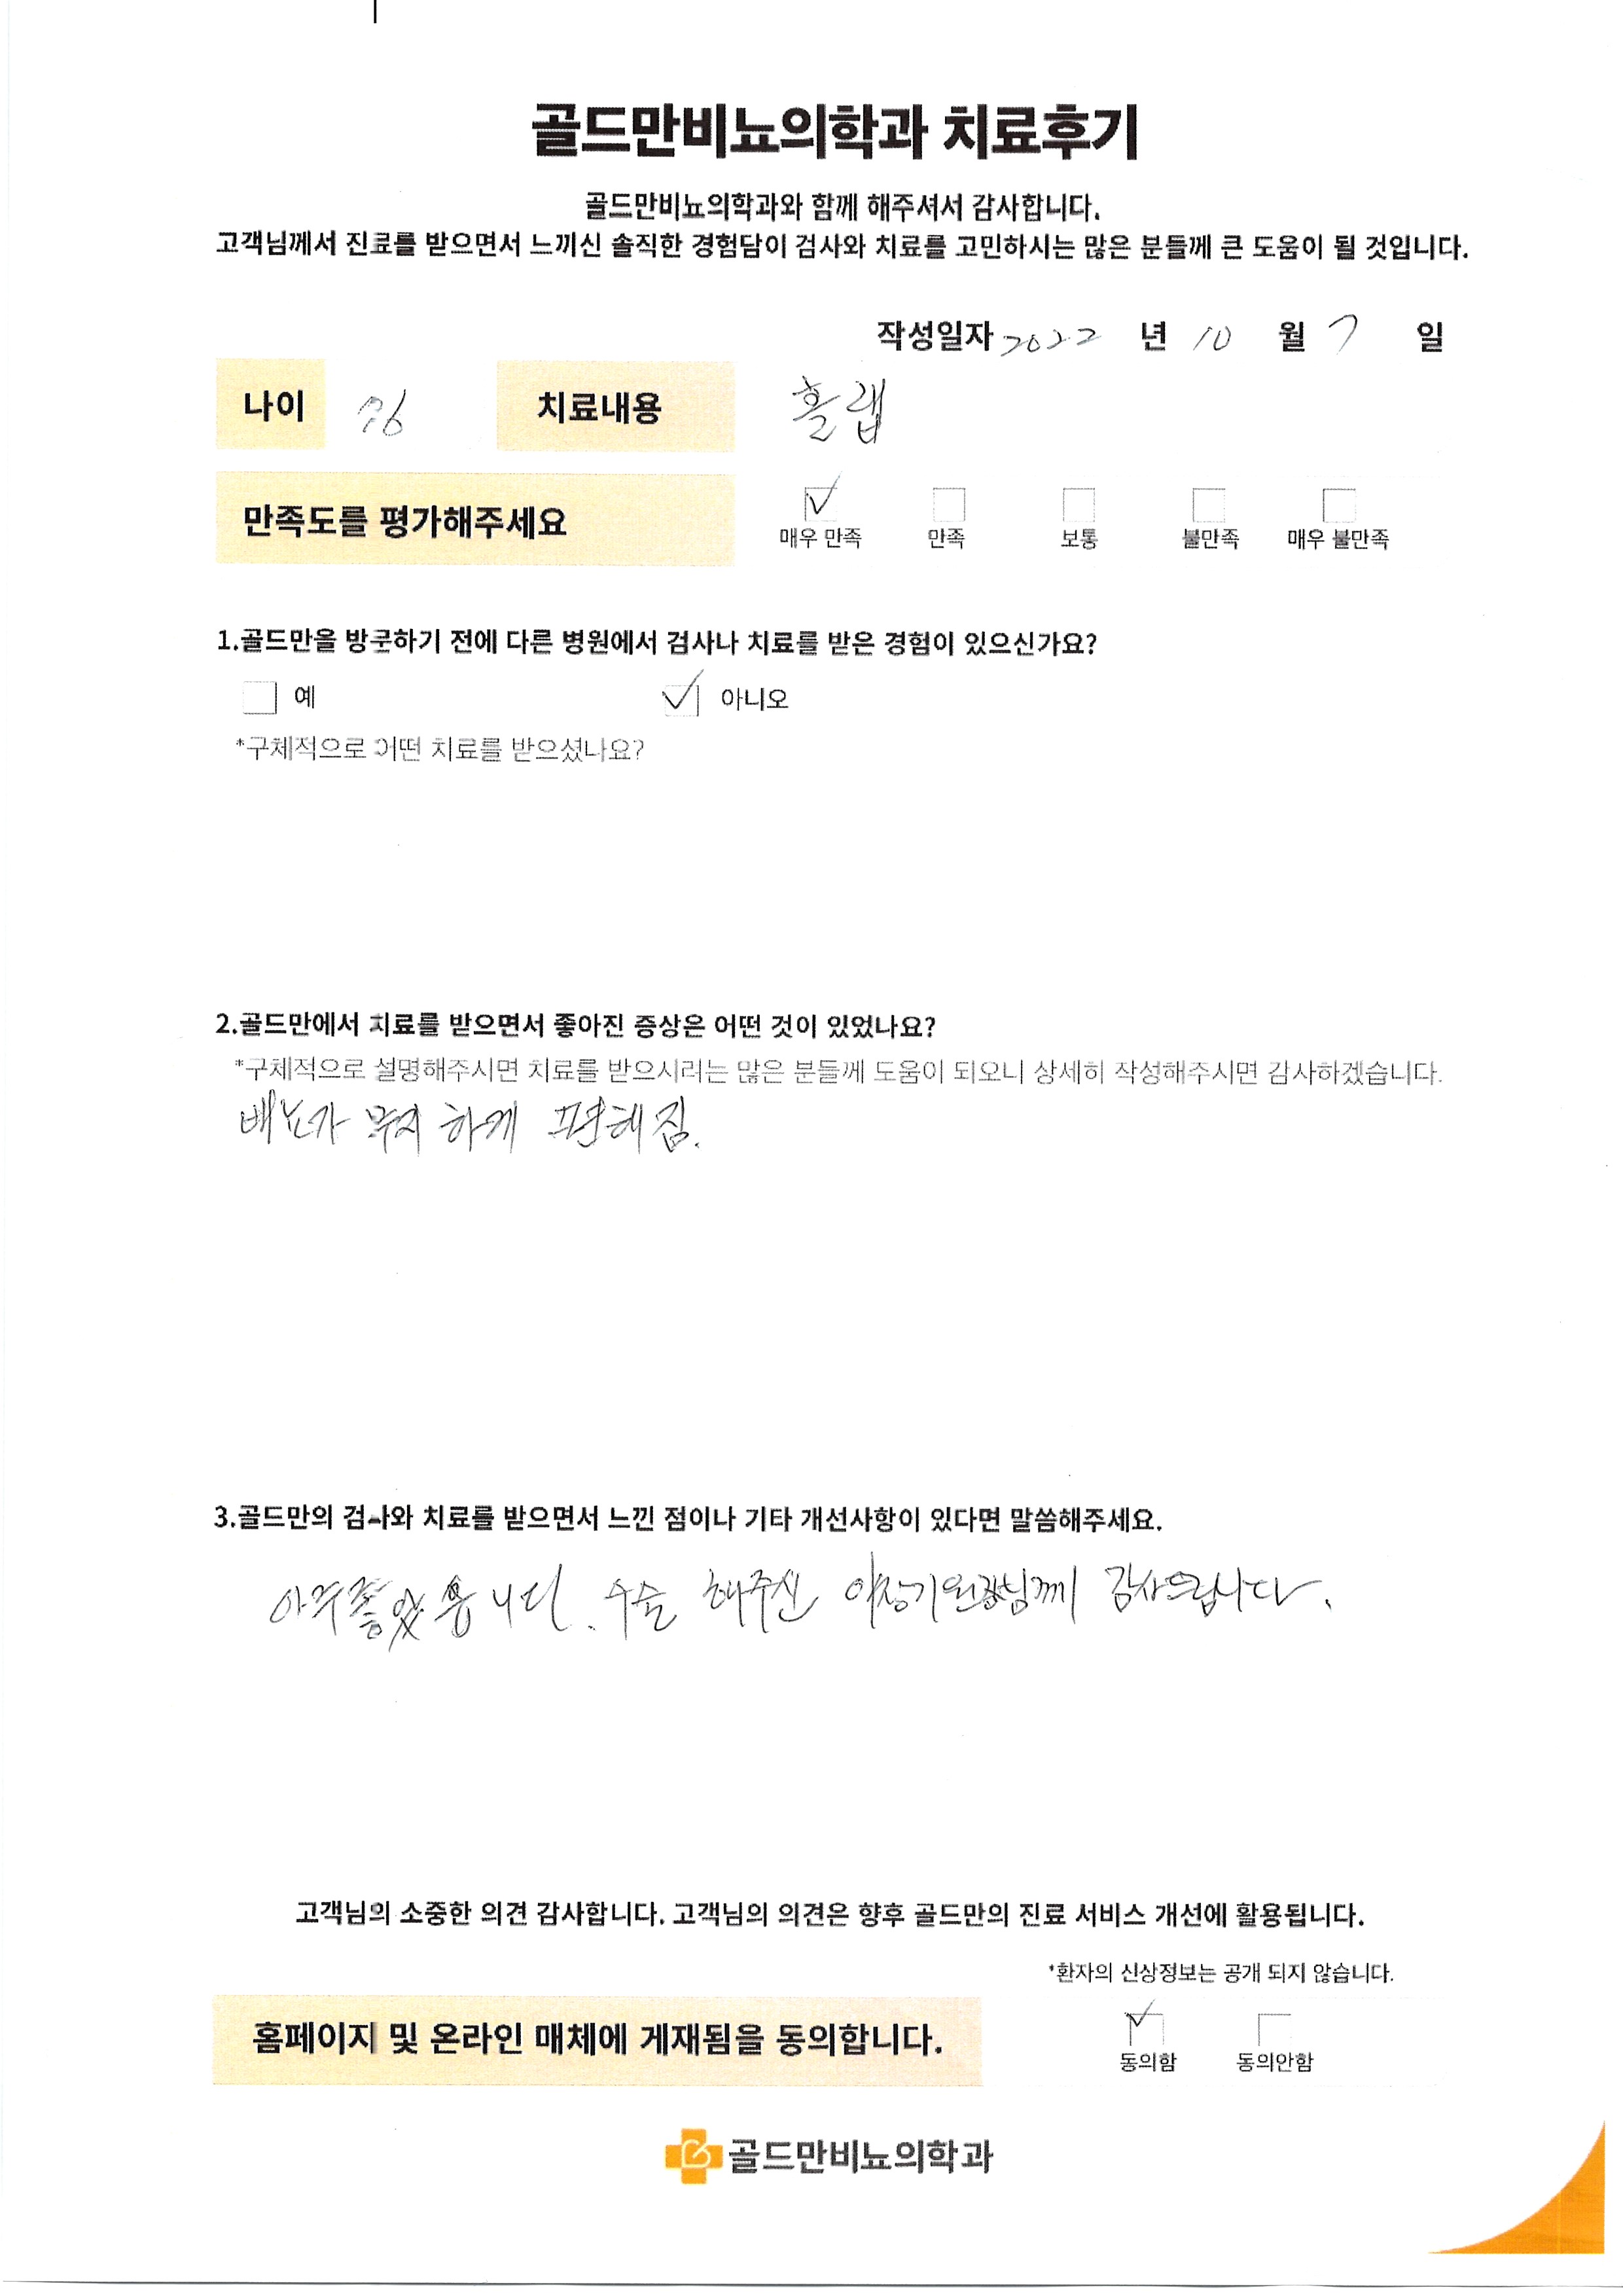 골드만비뇨의학과 치료후기
골드만비뇨의학과와 함께 해주셔서 감사합니다.
고객님께서 진료를 받으면서 느끼신 솔직한 경험담이 검사와 치료를 고민하시는 많은 분들께 큰 도움이 될 것입니다.
작성일자 2022 년 10 월 7 일
나이 치료내용 홀랩
만족도를 평가해주세요
매우 만족 만족 보통 불만족 매우 불만족
1.골드만을 방문하기 전에 다른 병원에서 검사나 치료를 받은 경험이 있으신가요?
예 아니오
*구체적으로 어떤 치료를 받으셨나요?
2.골드만에서 치료를 받으면서 좋아진 증상은 어떤 것이 있었나요?
*구체적으로 설명해주시면 치료를 받으시려는 많은 분들께 도움이 되오니 상세히 작성해주시면 감사하겠습니다.
배뇨가 무지 하게 편해짐.
3.골드만의 검사와 치료를 받으면서 느낀 점이나 기타 개선사항이 있다면 말씀해주세요.
아주좋았읍니다. 수술 해주신 이창기원장님께 감사드립니다.
고객님의 소중한 의견 감사합니다. 고객님의 의견은 향후 골드만의 진료 서비스 개선에 활용됩니다.
*환자의 신상정보는 공개 되지 않습니다.
홈페이지 및 온라인 매체에 게재됨을 동의합니다.
동의함 동의안함
골드만비뇨의학과